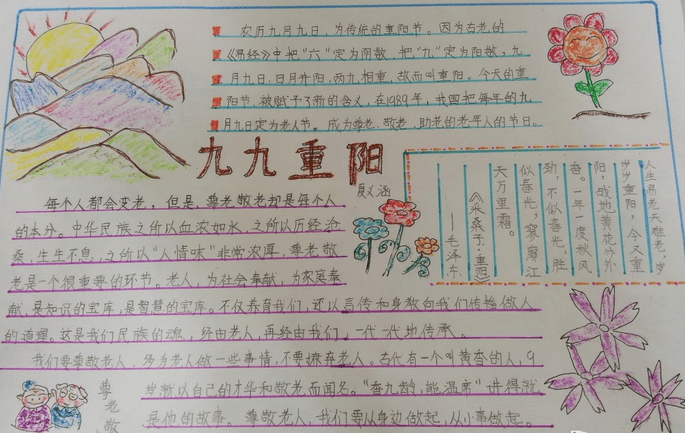 农历九月九日，为传统的重阳节。因为古老的
《易经》中把“六”定为阴数，把“九”定为阳数，九
月九日，日月并阳，两九相重，故而叫重阳。今天的重
阳节，被赋予了新的含义，在1989年，我国把每年的九
月九日定为老人节。成为尊老、敬老、助老的老年人的节日。
九九重阳
夏义涵
每个人都会变老，但是，尊老敬老却是每个人
的本分。中华民族之所以血浓如水，之所以历经沧
桑，生生不息，之所以“人情味”非常浓厚，尊老敬
老是一个很重要的环节。老人，为社会奉献，为家庭奉
献，是知识的宝库，是智慧的宝库。不仅养育我们，还以言传和身教向我们传播做人
的道理。这是我们民族的魂，经由老人，再经由我们，一代一代地传承。
我们要尊敬老人，多为老人做一些事情，不要摈弃老人。古代有一个叫黄香的人，9
岁就以自己的才华和敬老而闻名。“香九龄，能温席”讲得就
是他的故事。尊敬老人，我们要从身边做起，从小事做起。
人生易老天难老，岁
岁重阳，今又重
阳，战地黄花分外
香。一年一度秋风
劲，不似春光，胜
似春光，寥廓江
天万里霜。
《采桑子·重阳》
——毛泽东
尊老敬